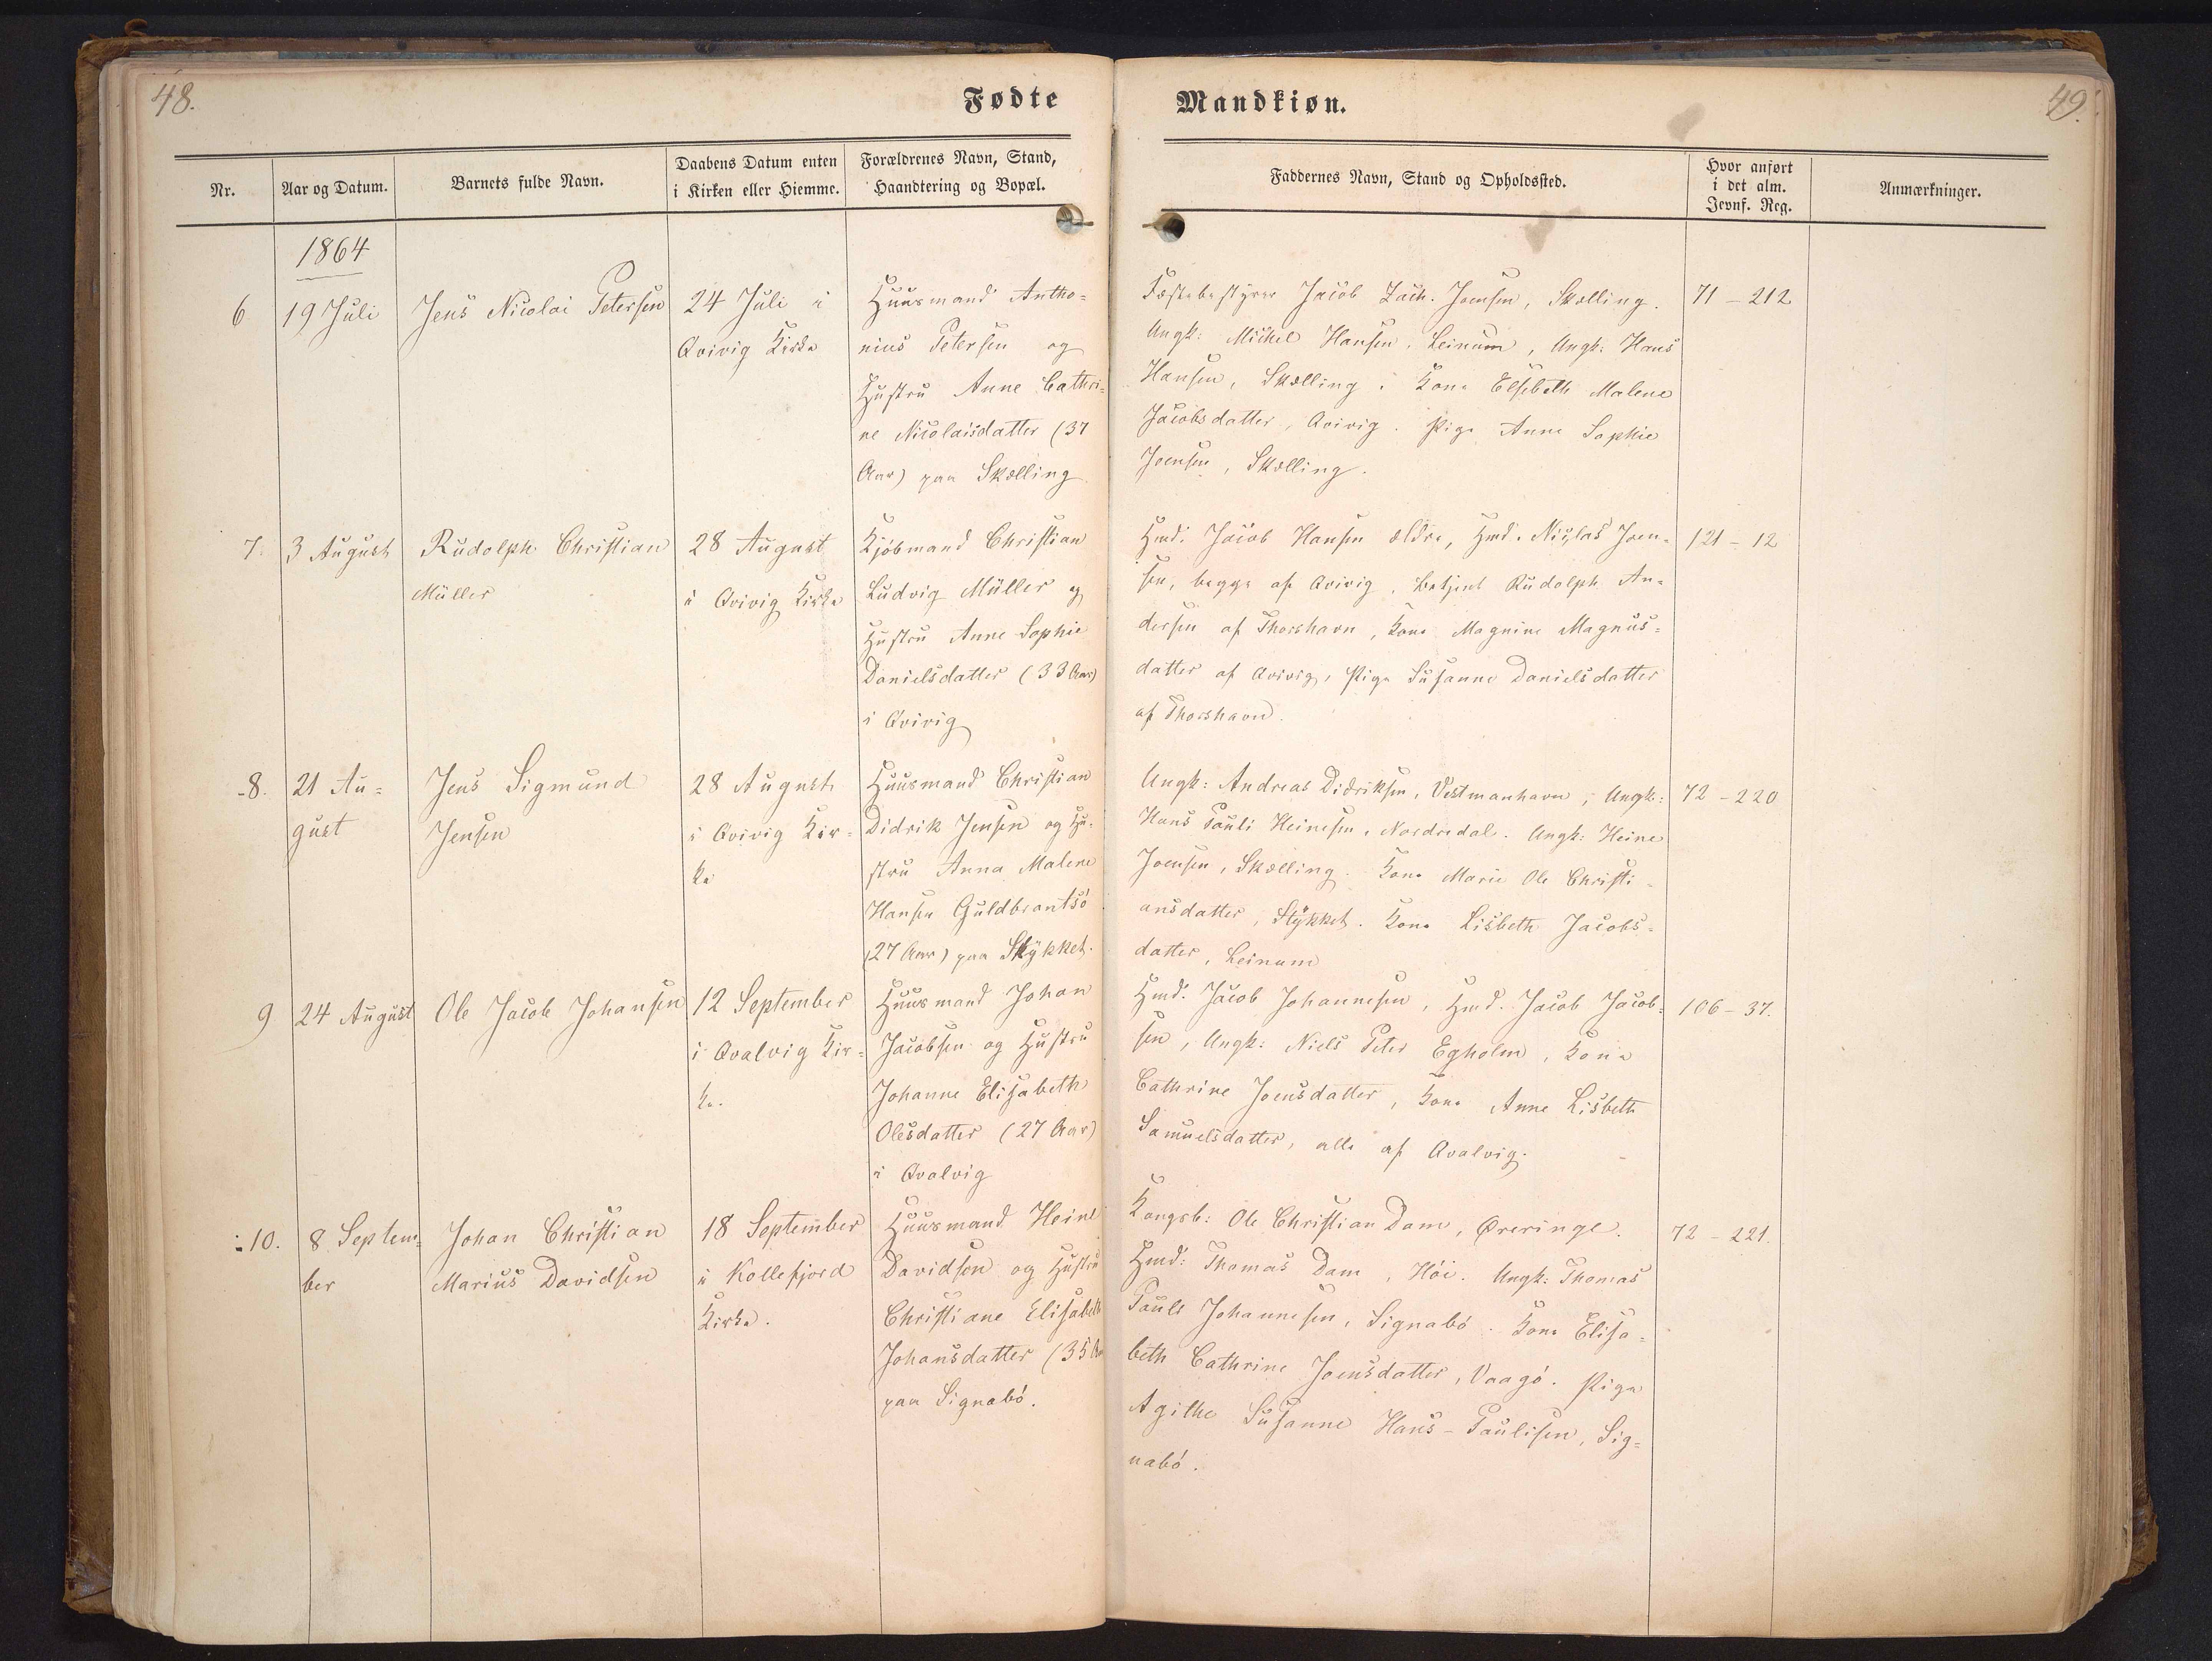 48.
Fødte
Nr.
Aar og Datum.
Barnets fulde Navn.
Daabens Datum enten
i Kirken eller Hiemme.
Forældrenes Navn, Stand,
Haandtering og Bopæl.
1864
6
19 Juli
Jens Nicolai Petersen
24 Juli i
Qvivig Kirke
Huusmand Antho=
nius Petersen og
Hustru Anne Cathri=
ne Nicolaisdatter (37
Aar) paa Skælling
7.
3 August
Rudolph Christian
Müller
28 August
i Qvivig Kirke
Kjöbmand Christian
Ludvig Müller og
Hustru Anne Sophie
Danielsdatter (33 Aar)
i Qvivig
8.
21 Au=
gust
Jens Sigmund
Jensen
28 August
i Qvivig Kir=
ke
Huusmand Christian
Didrik Jensen og Hu=
stru Anna Malene
Hansen Guldbrantsö
(27 Aar) paa Stykket.
9
24 August
Ole Jacob Johansen
12 September
i Qvalvig Kir=
ke.
Huusmand Johan
Jacobsen og Hustru
Johanne Elisabeth
Olesdatter (27 Aar)
i Qvalvig
10.
8 Septem=
ber
Johan Christian
Marius Davidsen
18 September
i Kollefjord
Kirke.
Huusmand Heine
Davidsen og Hustru
Christiane Elisabeth
Johansdatter (35 Aar
paa Signabö.
Mandkiøn.
49.
Faddernes Navn, Stand og Opholdssted.
Hvor anført
i det alm.
Jevnf. Reg.
Anmærkninger.
Fæstebestyrer Jacob Zach. Joensen, Skælling.
Ungk: Michel Hansen, Leinum, Ungk: Hans
Hansen, Skælling. Kone Elsebeth Malene
Jacobsdatter, Qvivig. Pige Anne Sophie
Joensen, Skælling.
71 - 212
Hmd: Jacob Hansen ældre, Hmd. Niclas Joen=
sen, begge af Qvivig, Betjent Rudolph An=
dersen af Thorshavn, Kone Magnine Magnus=
datter af Qvivig, Pige Susanne Danielsdatter
af Thorshavn.
121 - 12
Ungk: Andreas Didriksen, Vestmanhavn, Ungk:
Hans Pauli Heinesen, Nordredal. Ungk: Heine
Joensen, Skælling. Kone Marie Ole Christi=
ansdatter, Stykket. Kone Lisbeth Jacobs=
datter, Leinum
72 - 220
Hmd. Jacob Johannesen, Hmd. Jacob Jacob=
sen, Ungk: Niels Peter Egholm, Kone
Cathrine Joensdatter, Kone Anne Lisbeth
Samuelsdatter, alle af Qvalvig.
106 - 37.
Kongsb: Ole Christian Dam, Øreringe.
Hmd: Thomas Dam, Höi. Ungk: Thomas
Pauli Johannesen, Signabö. Kone Elisa=
beth Cathrine Joensdatter, Vaagö. Pige
Agithe Susanne Hans-Paulisen, Sig=
nabö.
72 - 221.